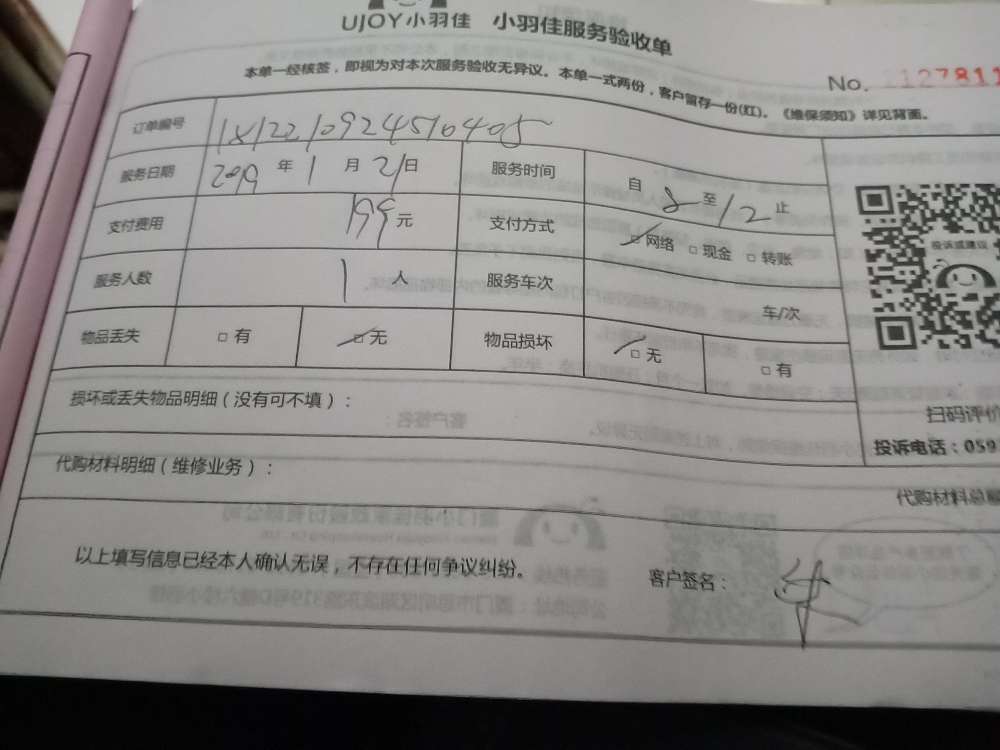 UJOY小羽佳 小羽佳服务验收单
No. 1127811
本单一经核签，即视为对本次服务验收无异议。本单一式两份，客户留存一份(红)。《维保须知》详见背面。
订单编号
服务日期 2019 年 1 月 21 日 服务时间 自 8 至 12 止
支付费用 199 元 支付方式 □网络 □现金 □转账
投诉或建议
服务人数 1 人 服务车次 车/次
物品丢失 □有 □无 物品损坏 □无 □有
损坏或丢失物品明细（没有可不填）：
扫码评价
投诉电话：059
代购材料明细（维修业务）：
代购材料总
以上填写信息已经本人确认无误，不存在任何争议纠纷。
客户签名：